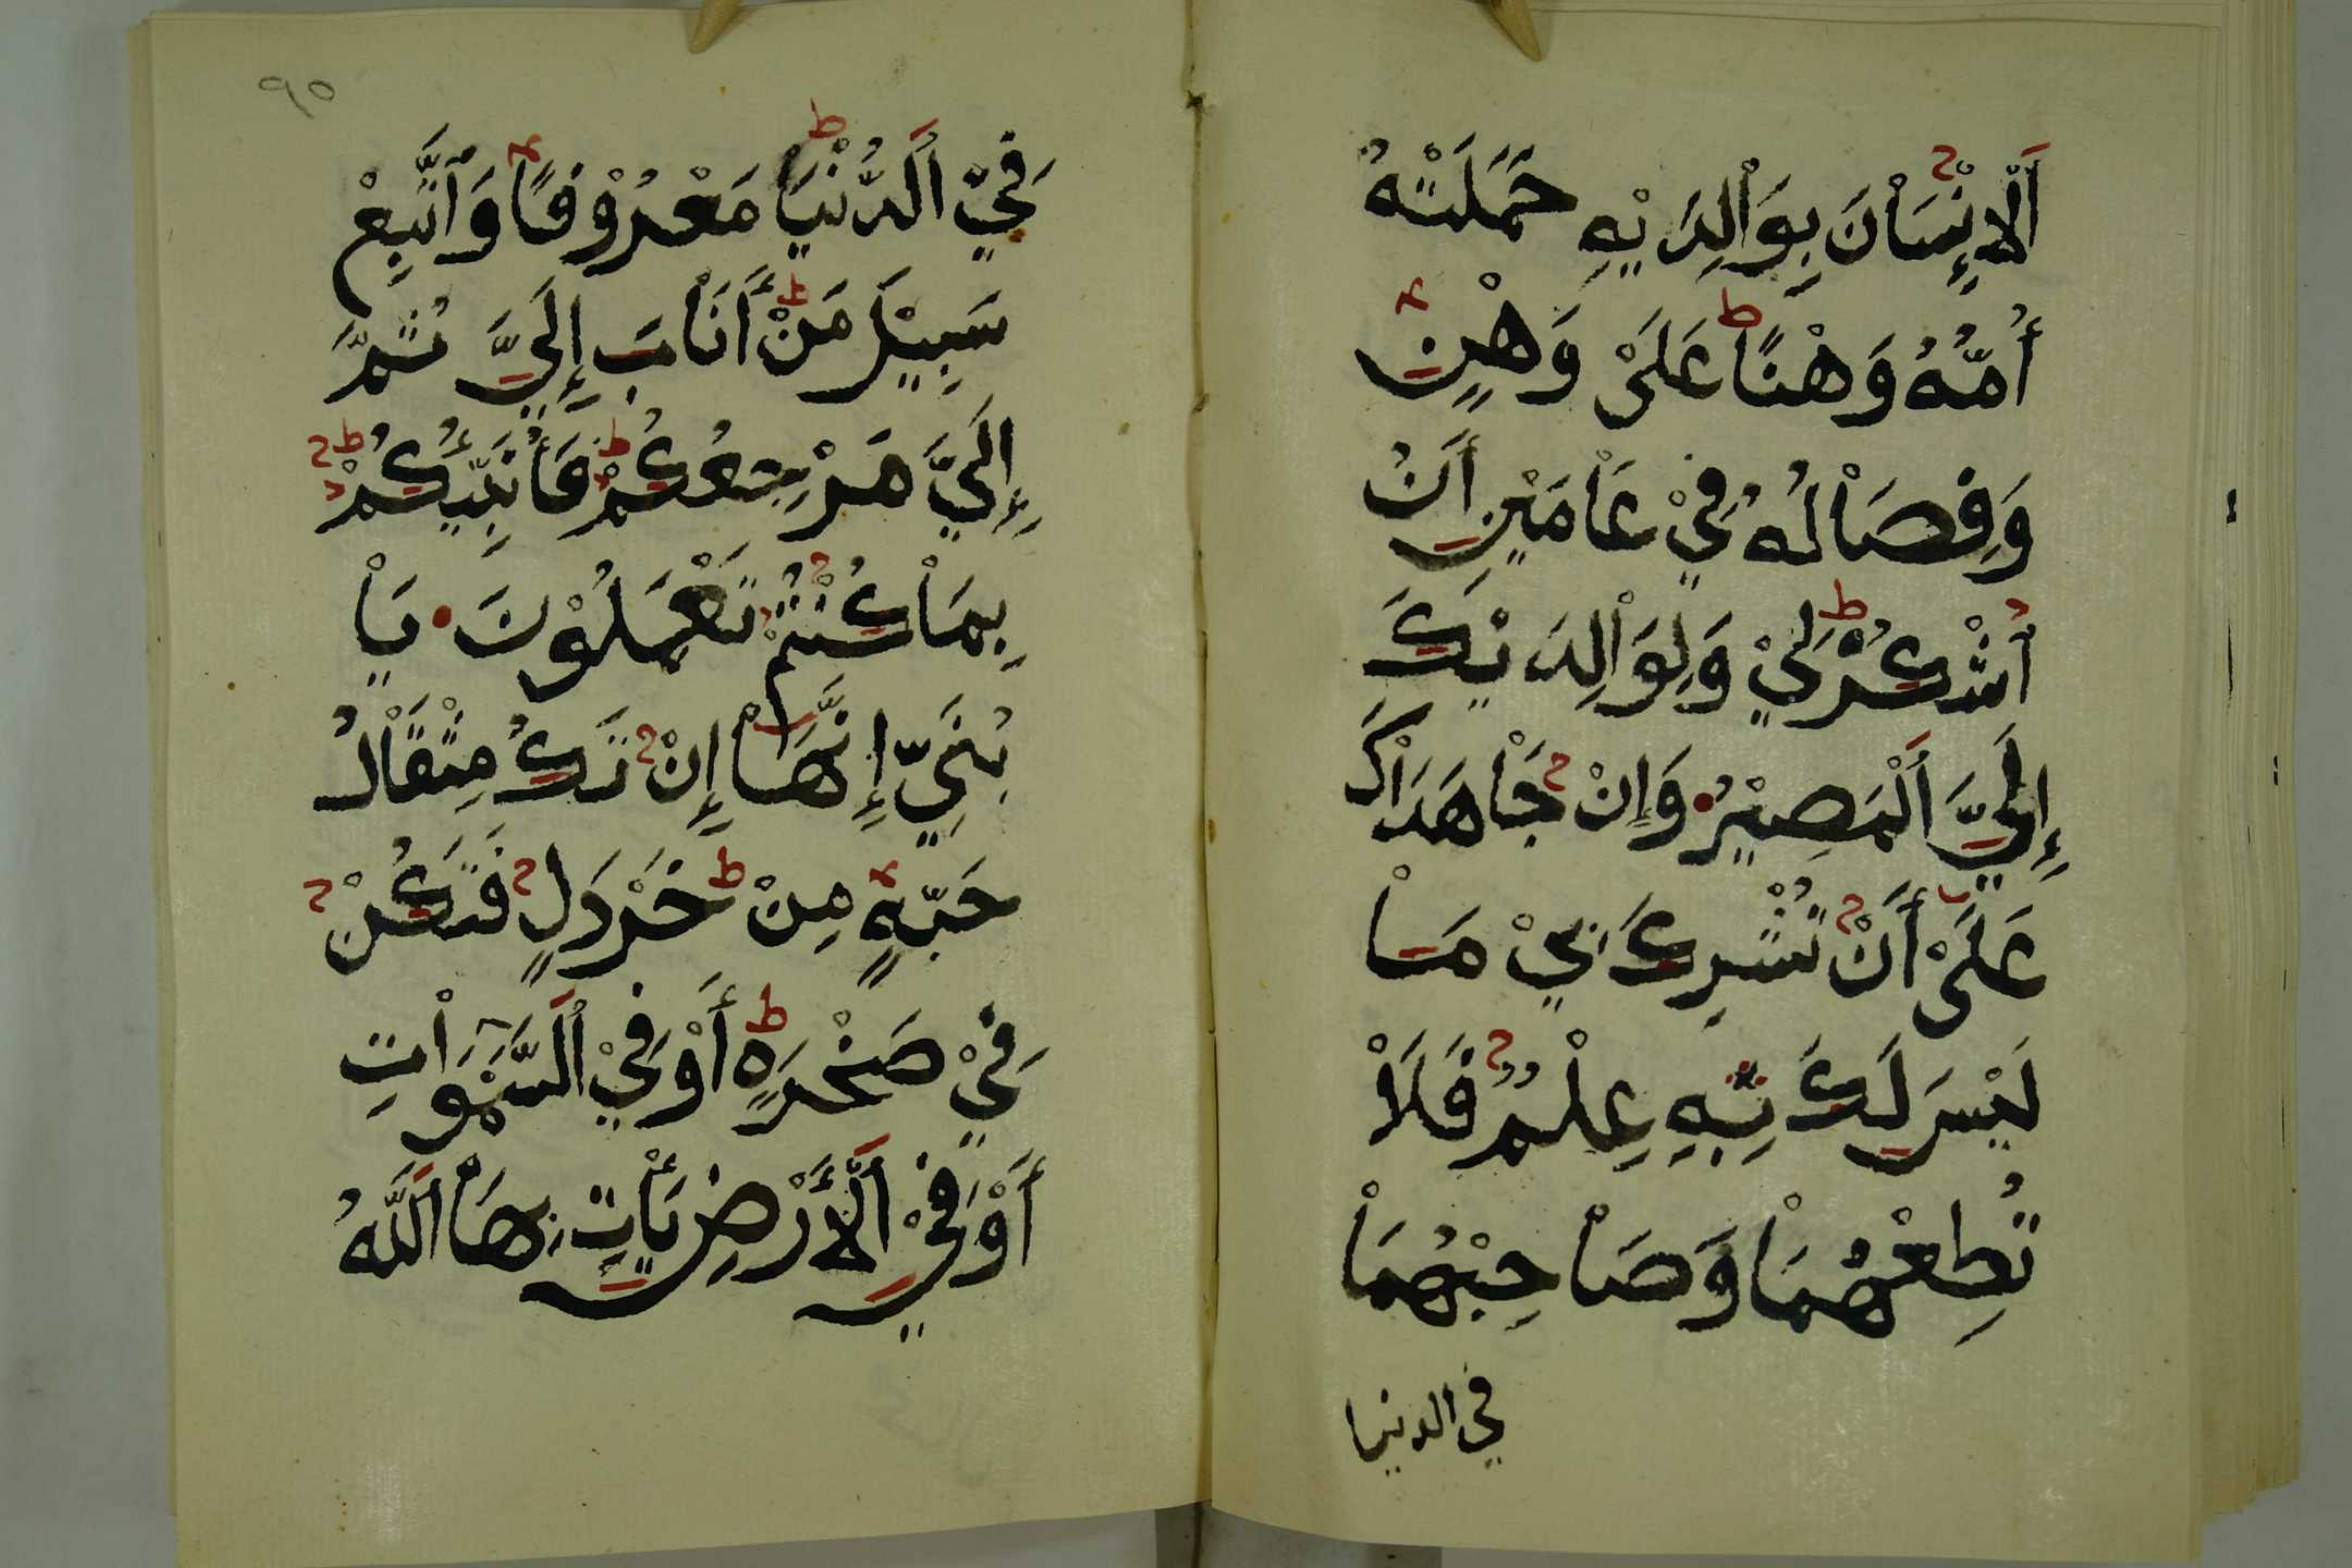 اَلْاِنْسَاْنَ بِوَاْلِدَيْهِ حَمَلَتْهُ
أُمُّهُ وَهْنًا عَلَىْ وَهْنٍ
وَفِصَاْلُهُ فِيْ عَاْمَيْنِ أَنُ
اُشْكُرْ لِيْ وَلِوَاْلِدَيْكَ
إِلَيَّ اَلْمَصِيْرُ وَإِنْ جَاْهَدَاْكَ
عَلَىْ أَنْ تُشْرِكَ بِيْ مَاْ
لَيْسَ لَكَ بِهِ عِلْمٌ فَلَاْ
تُطِعْهُمَاْ وَصَاْحِبْهُمَاْ
في الدنيا
٩٥
فِيْ اَلدُّنْيَاْ مَعْرُوْفًا وَاَتَّبِعْ
سَبِيْلَ مَنْ أَنَاْبَ إِلَيَّ ثُمَّ
إِلَيَّ مَرْجِعُكُمْ فَأُنَبِّئُكُمْ
بِمَاْ كُنْتُمْ تَعْمَلُوْنَ يَاْ
بُنَيِّ إِنَّهَاْ إِنْ تَكُ مِثْقَاْلُ
حَبَّةٍ مِنْ خَرْدَلٍ فَتَكُنْ
فِيْ صَخْرَةٍ أَوْ فِيْ اَلسَّمَوَاْتِ
أَوْ فِيْ اَلْأَرْضِ يَأْتِ بِهَاْ اَللَّهُ